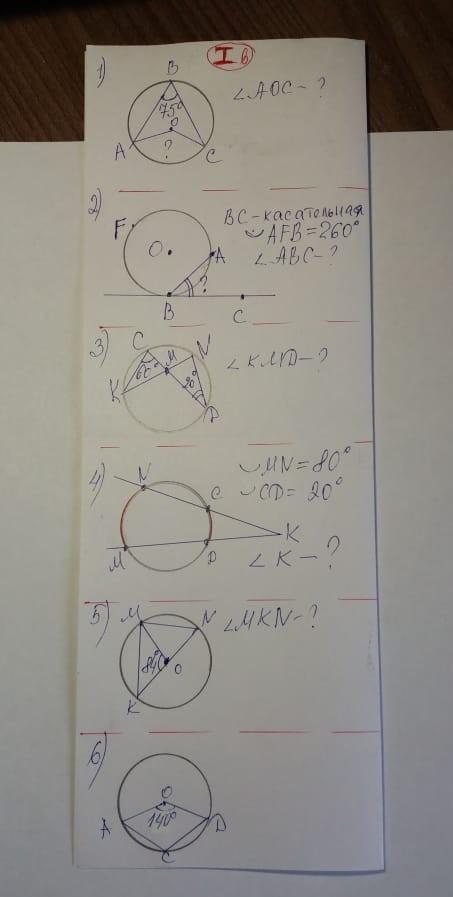 I в
1)
B
75°
O
?
A
C
∠AOC-?
2)
F
O
A
?
B
C
BC-касательная
◡AFB=260°
∠ABC-?
3)
C
M
N
K
60°
20°
D
∠KMD-?
4)
N
C
K
M
D
◡MN=80°
◡CD=20°
∠K-?
5)
M
N
84°
O
K
∠MKN-?
6)
O
A
140°
D
C